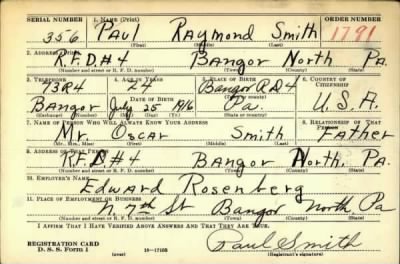 SERIAL NUMBER 1. NAME (Print) ORDER NUMBER
356 Paul Raymond Smith 1791
(First) (Middle) (Last)
2. ADDRESS (Print)
R.F.D#4 Bangor North Pa.
(Number and street or R. F. D. number) (Town) (County) (State)
3. TELEPHONE 4. AGE IN YEARS 5. PLACE OF BIRTH 6. COUNTRY OF CITIZENSHIP
73R4 24 Bangor R.D 4
DATE OF BIRTH
Bangor July 25 1916 Pa. U.S.A.
(Exchange) (Number) (Mo.) (Day) (Yr.) (State or country)
7. NAME OF PERSON WHO WILL ALWAYS KNOW YOUR ADDRESS 8. RELATIONSHIP OF THAT PERSON
Mr. Oscar Smith Father
(Mr., Mrs., Miss) (First) (Middle) (Last)
9. ADDRESS OF THAT PERSON
R.F.D#4 Bangor North. Pa.
(Number and street or R. F. D. number) (Town) (County) (State)
10. EMPLOYER'S NAME
Edward Rosenberg
11. PLACE OF EMPLOYMENT OR BUSINESS
N 7th St Bangor North Pa
(Number and street or R. F. D. number) (Town) (County) (State)
I AFFIRM THAT I HAVE VERIFIED ABOVE ANSWERS AND THAT THEY ARE TRUE.
REGISTRATION CARD
D. S. S. Form 1 16-17105 Paul Smith
(Registrant's signature)